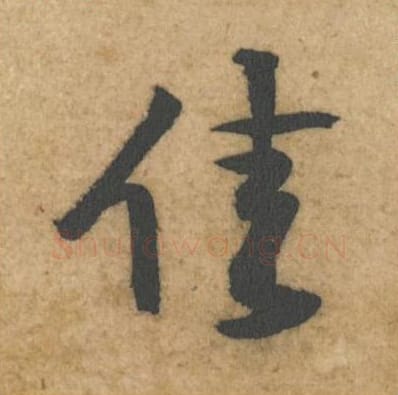 佳
shufawang.CN